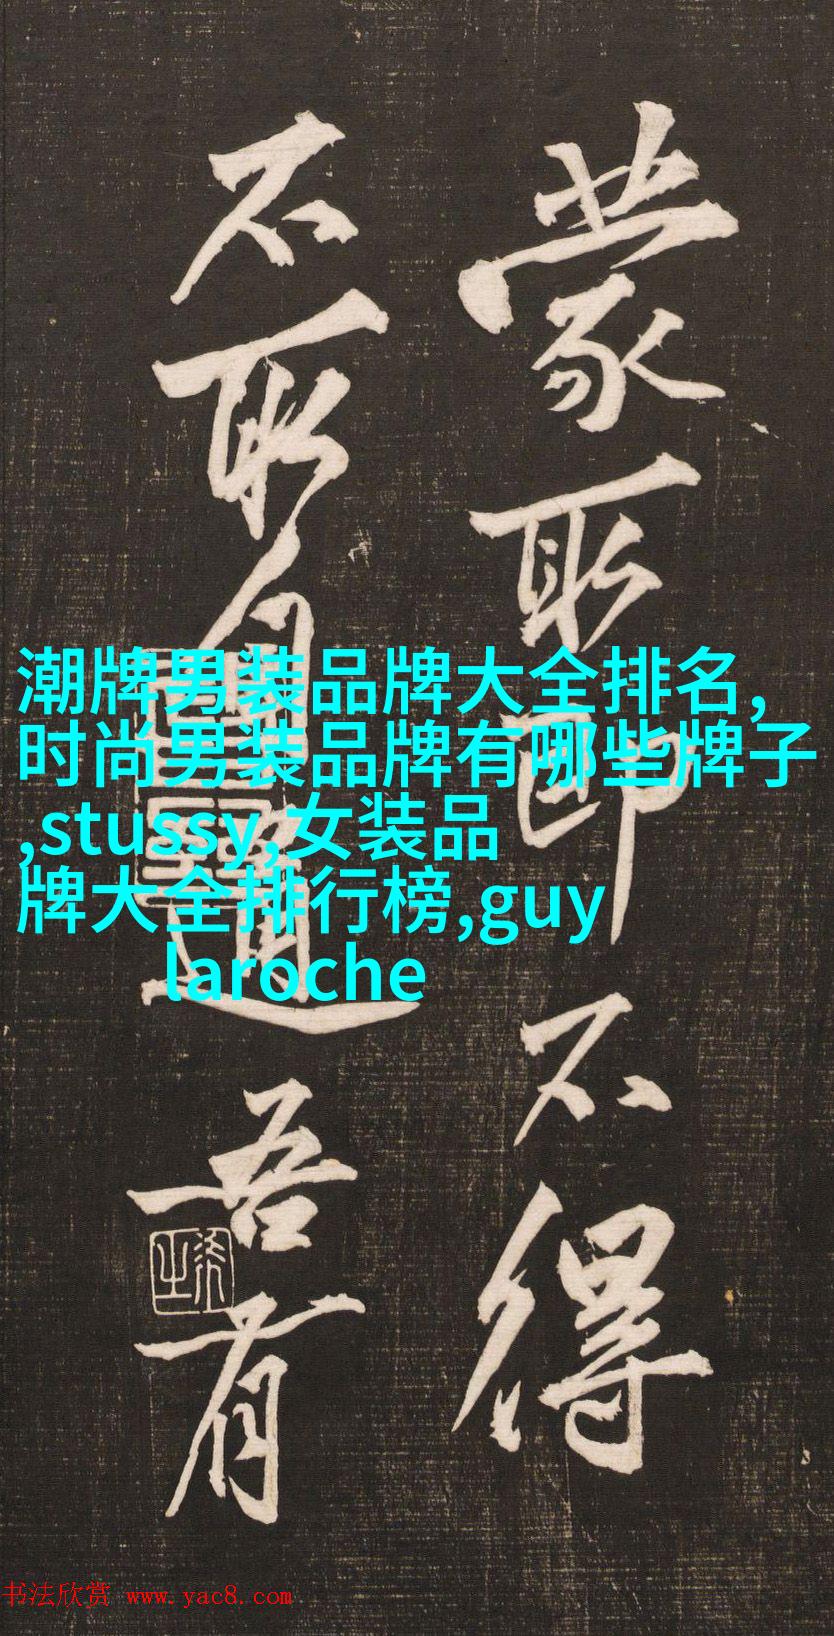 蒙取即不得
不取自道吾有
潮牌男装品牌大全排名,
时尚男装品牌有哪些牌子
,stussy,女装品
牌大全排行榜,guy
laroche
书法欣赏 www.yac8.com